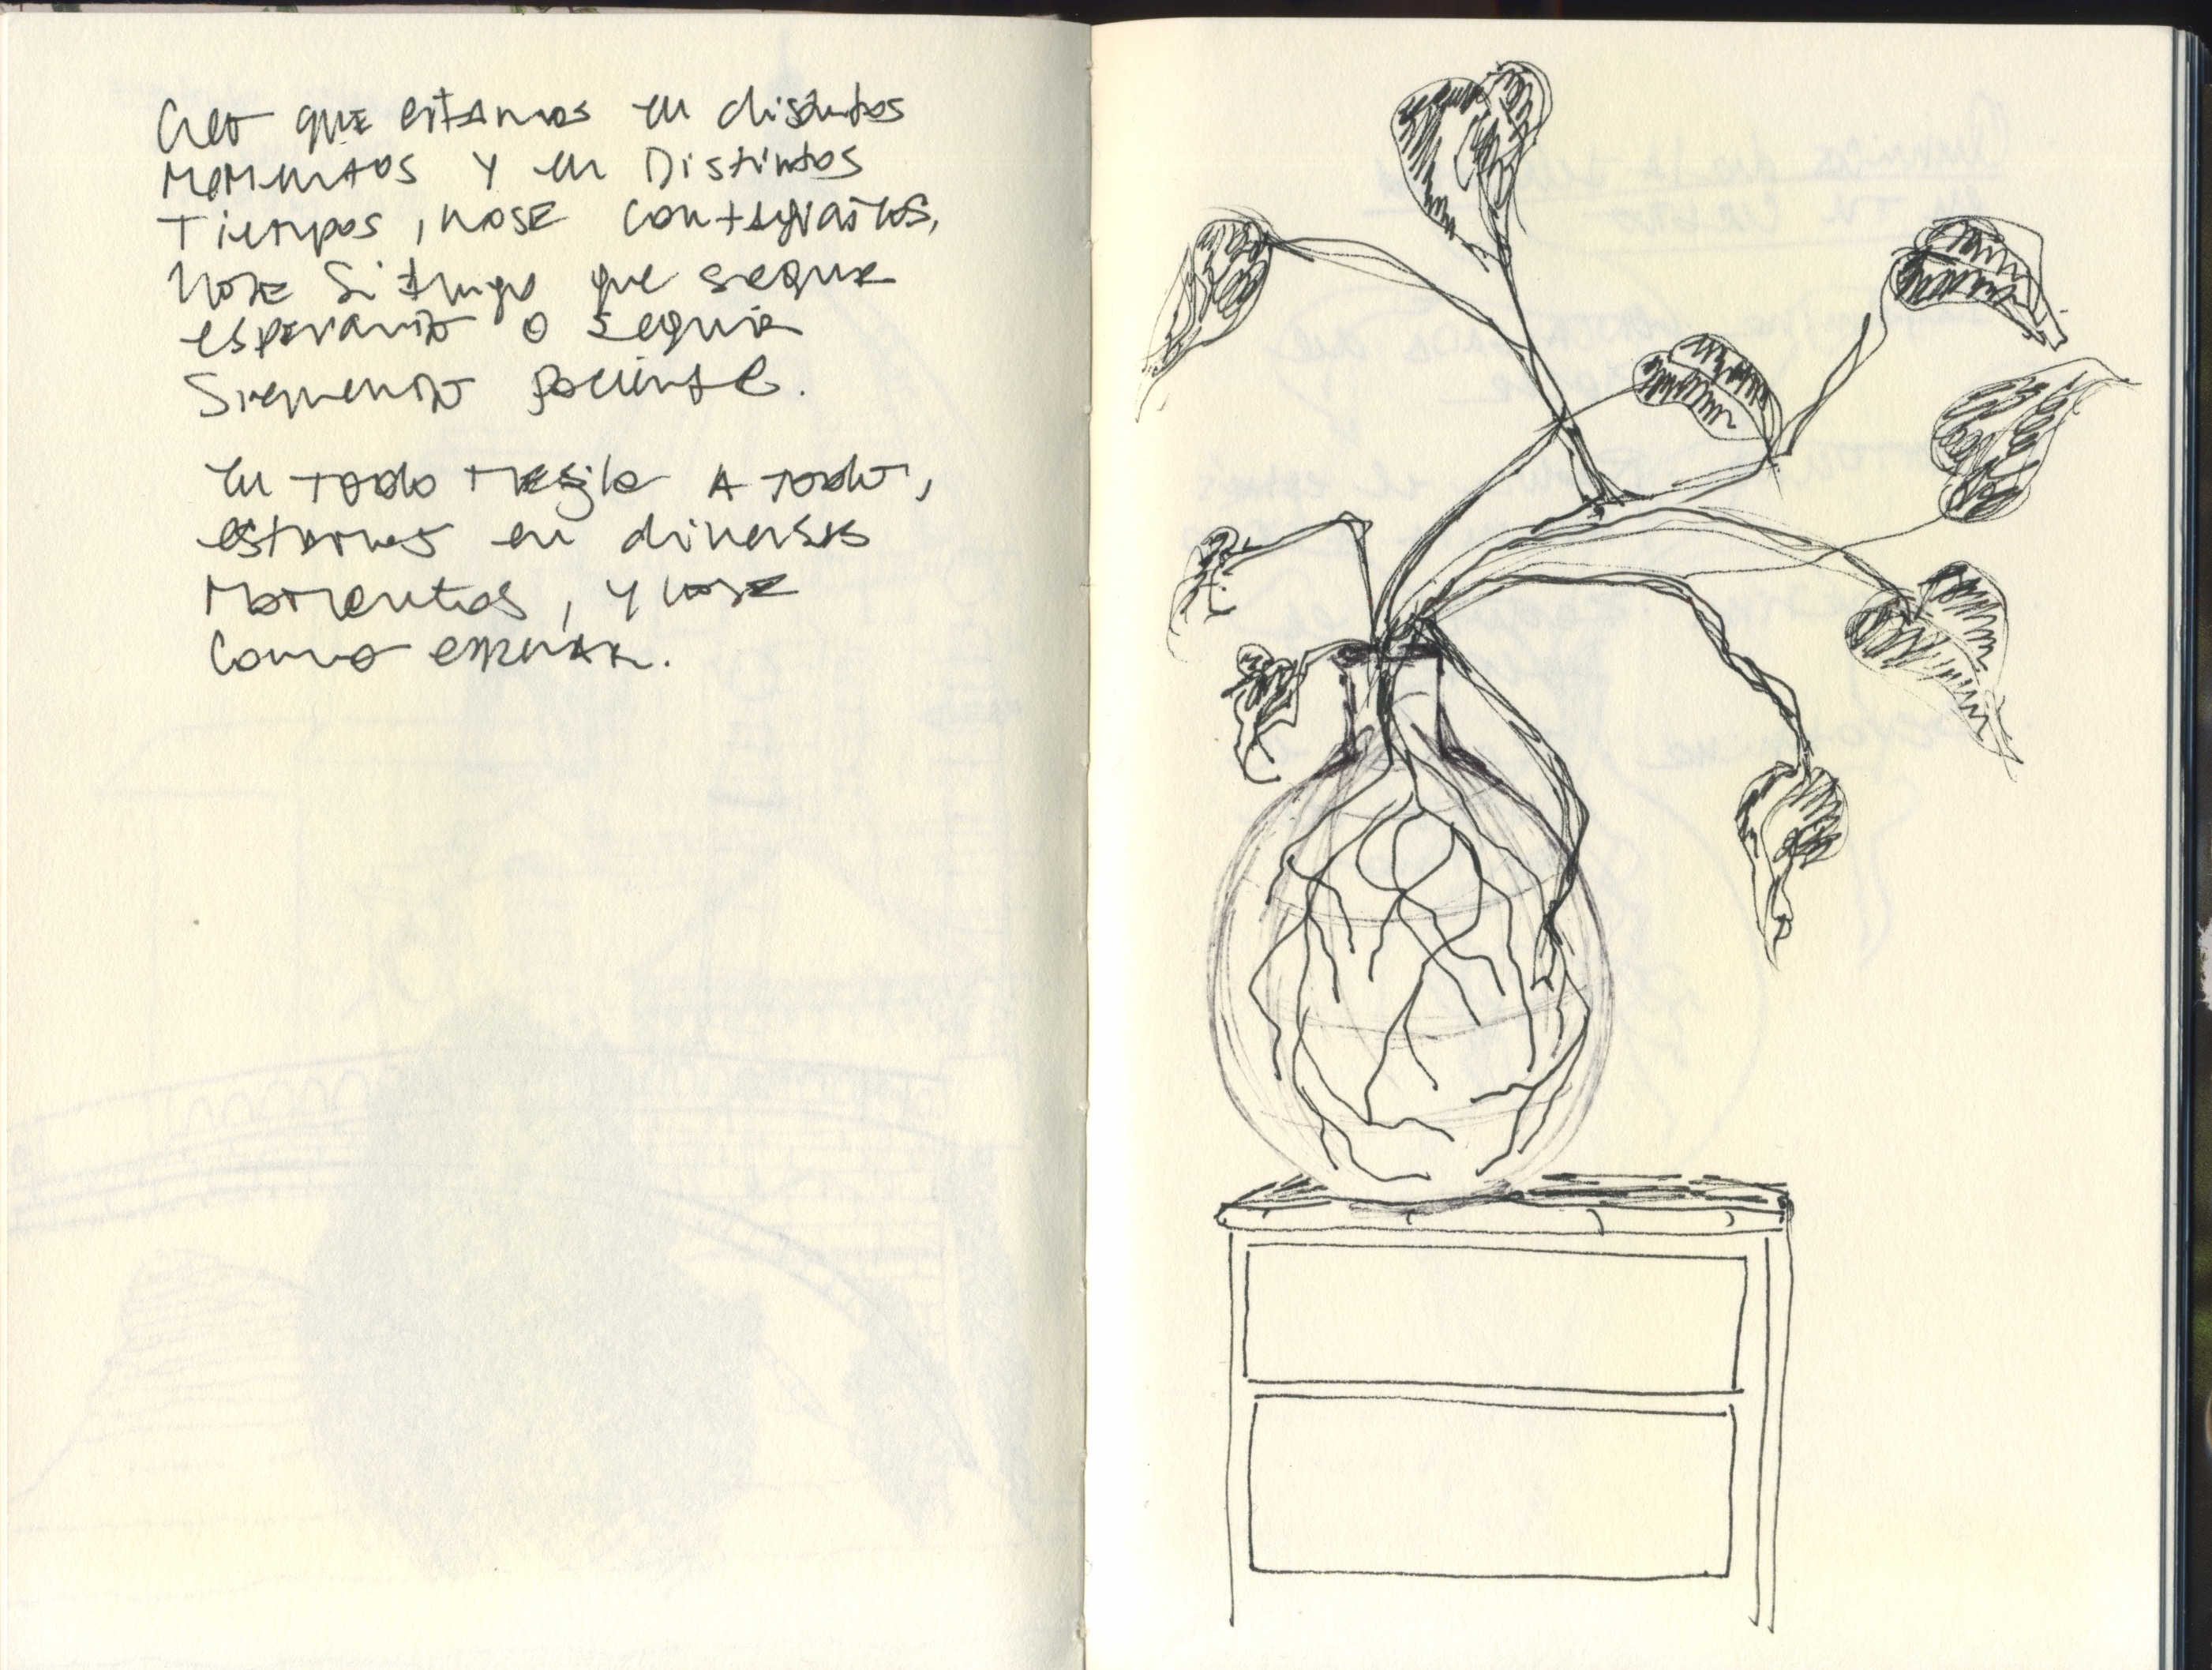 Creo que estamos en distintos
momentos y en Distintos
Tiempos, nose
nose si tengo que seguir
esperando o seguir
siguiendo paciente.
En todo a todo,
estamos en diversos
Momentos, y nose
como esperar.